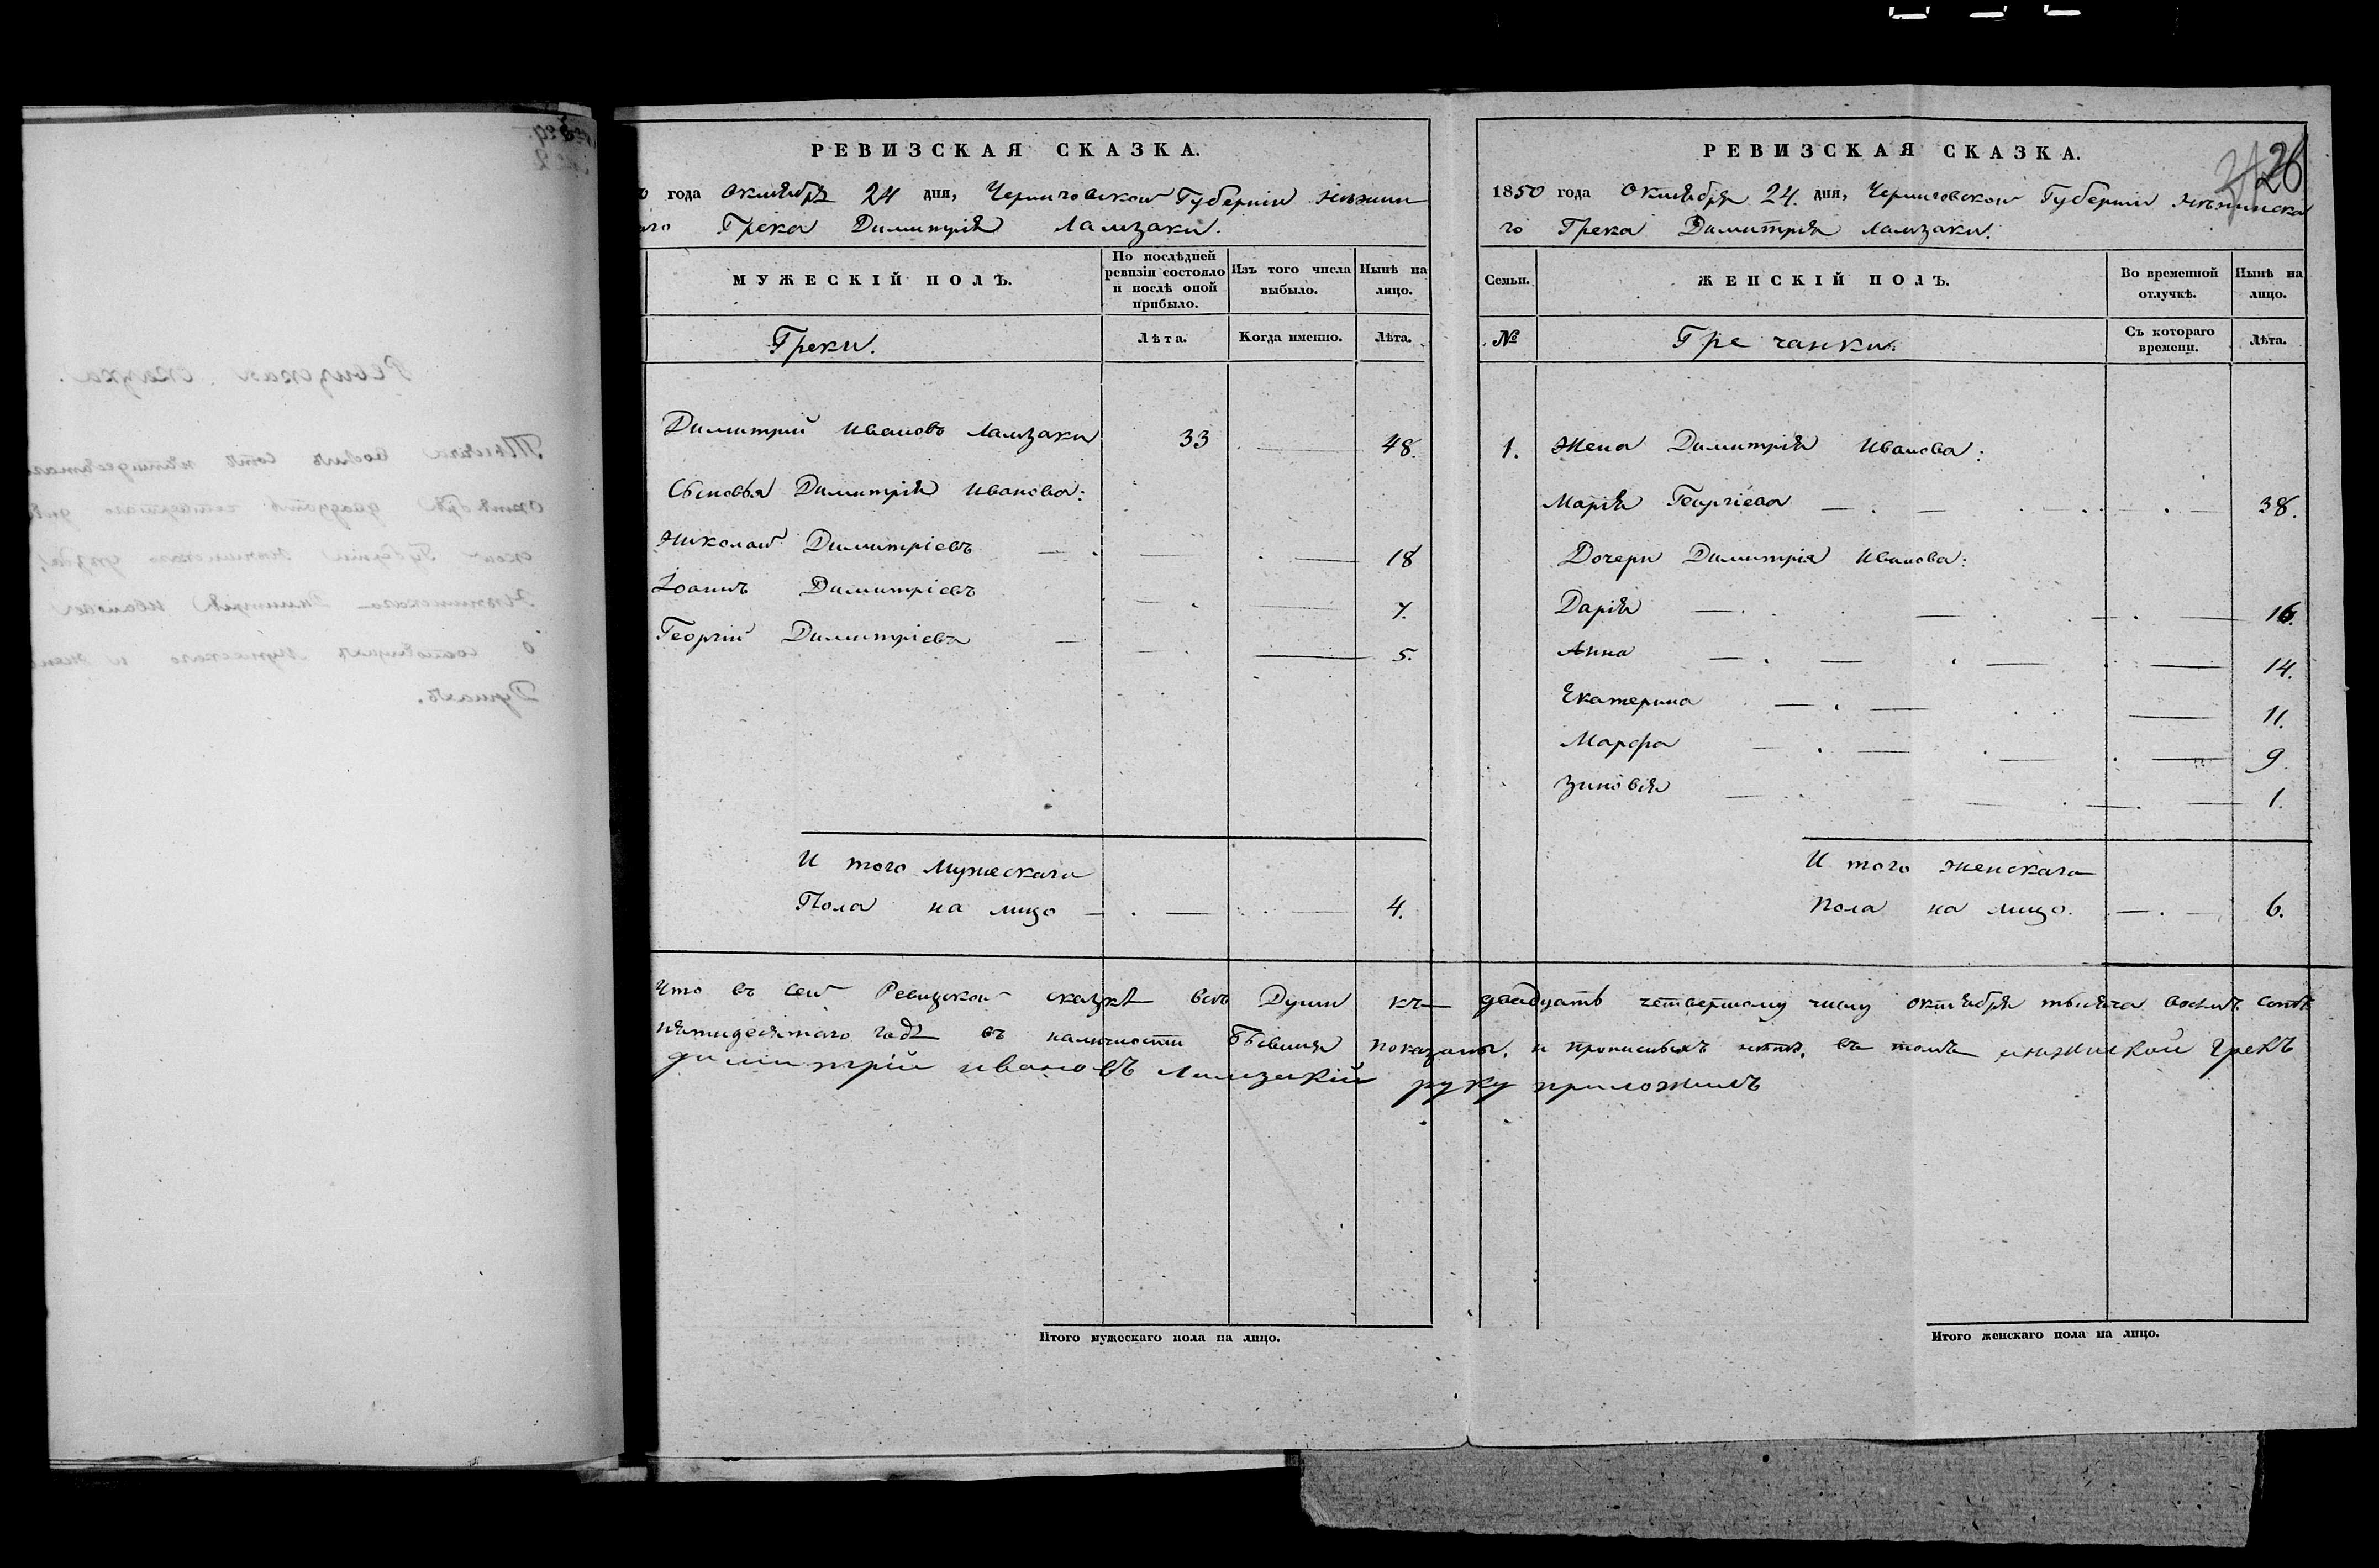 26
РЕВИЗСКАЯ СКАЗКА.
0 года Октября 24 дня, Черниговской Губернiи Нѣжин
аго Грека Димитрiя Ламзаки.
МУЖЕСКIЙ ПОЛЪ.
По послѣдней ревизiи состояло и послѣ оной прибыло.
Изъ того числа выбыло.
Нынѣ на лицо.
Греки.
Лѣта.
Когда именно.
Лѣта.
Димитрий Ивановъ Ламзаки 33 48.
Сыновья Димитрiя Иванова:
Николай Димитрiевъ 18
Iоаннъ Димитрiевъ 7.
Георгiй Димитрiевъ 5.
И того Мужескаго
Пола на лицо 4.
РЕВИЗСКАЯ СКАЗКА.
1850 года Октября 24. дня, Черниговской Губернiи Нѣжинска
го Грека Димитрiя Ламзаки.
Семьи.
ЖЕНСКIЙ ПОЛЪ.
Во временной отлучкѣ.
Нынѣ на лицо.
№
Гречанки.
Съ котораго времени.
Лѣта.
1. Жена Димитрiя Иванова:
Марiя Георгiева 38.
Дочери Димитрiя Иванова:
Дарiя 16.
Анна 14.
Екатерина 11.
Марфа 9
Зиновiя 1.
И того женскаго
пола на лицо. 6.
Что въ сей Ревизской сказкѣ всѣ Души къ двадцать четвертому числу октября тысяча восемъ сотъ
пятидесятаго года въ наличности Бывшия показаны, и прописныхъ нѣтъ, въ томъ нѣжинской грекъ
димитрiй ивановъ Ламзакiй руку приложилъ
Итого мужескаго пола на лицо.
Итого женскаго пола на лицо.
Ревизская сказка.
Тысяча восемъ сотъ пятидесятаго
октября двадцать четвертаго дня
ской Губернiи Нѣжинскаго уѣзда,
Нѣжинскаго Димитрiя Иванова
о состоящихъ мужескаго и жен
Душахъ.